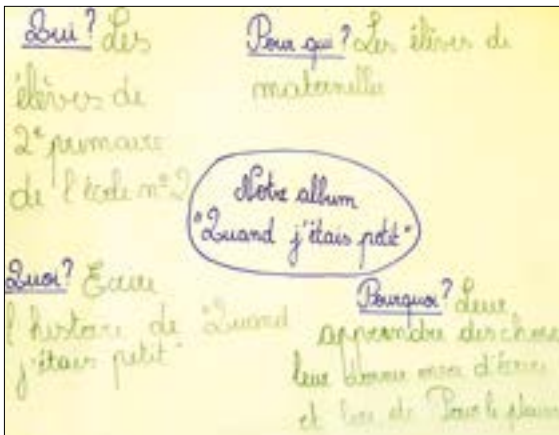 Qui ? Les
élèves de
2e primaire
de l'école n°2
Pour qui ? Les élèves de
maternelle
Notre album
"Quand j'étais petit"
Quoi ? Ecrire
l'histoire de "Quand
j'étais petit"
Pourquoi ? Leur
apprendre des choses
leur donner envie d'écrire
et lire et Pour le plaisir